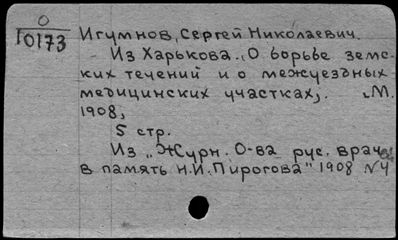 О
10173
Игумнов, Сергей Николаевич.
Из Харькова. „О борьбе земс-
ких течений и о межуездных
медицинских участках„. „М.
1908,
5 стр.
Из „Журн. О-ва рус. врачей
в память Н.И. Пирогова" 1908 N4